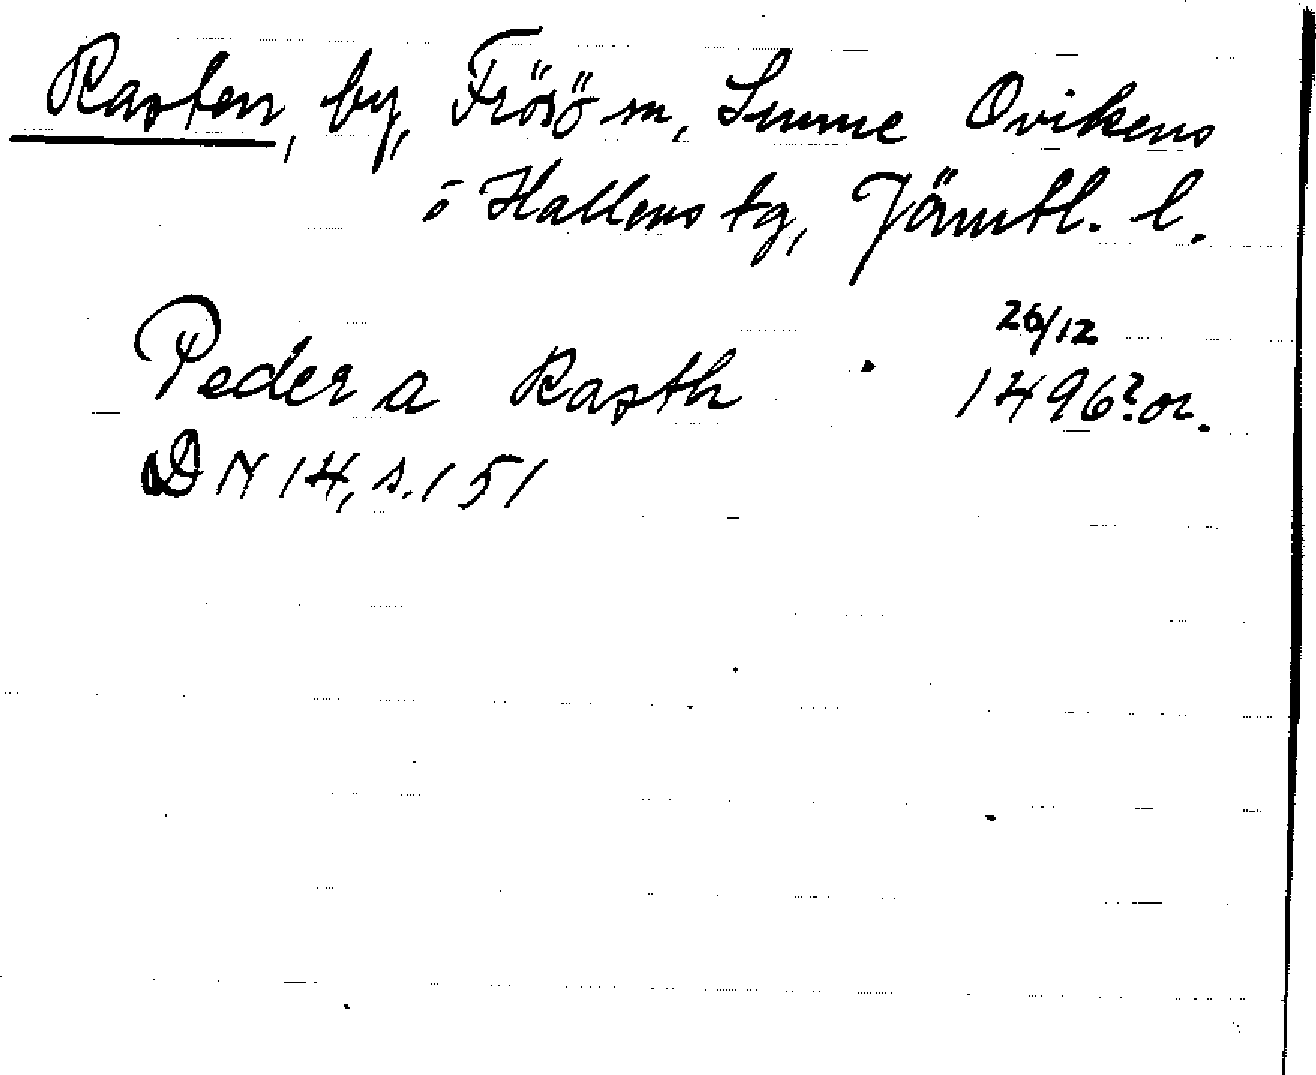 Rasten, by, Frösö sn, Sunne Ovikens
o Hallens tg, Jämtl. l.
26/12
Peder a Rasth 1496? or.
DN 14, s. 151